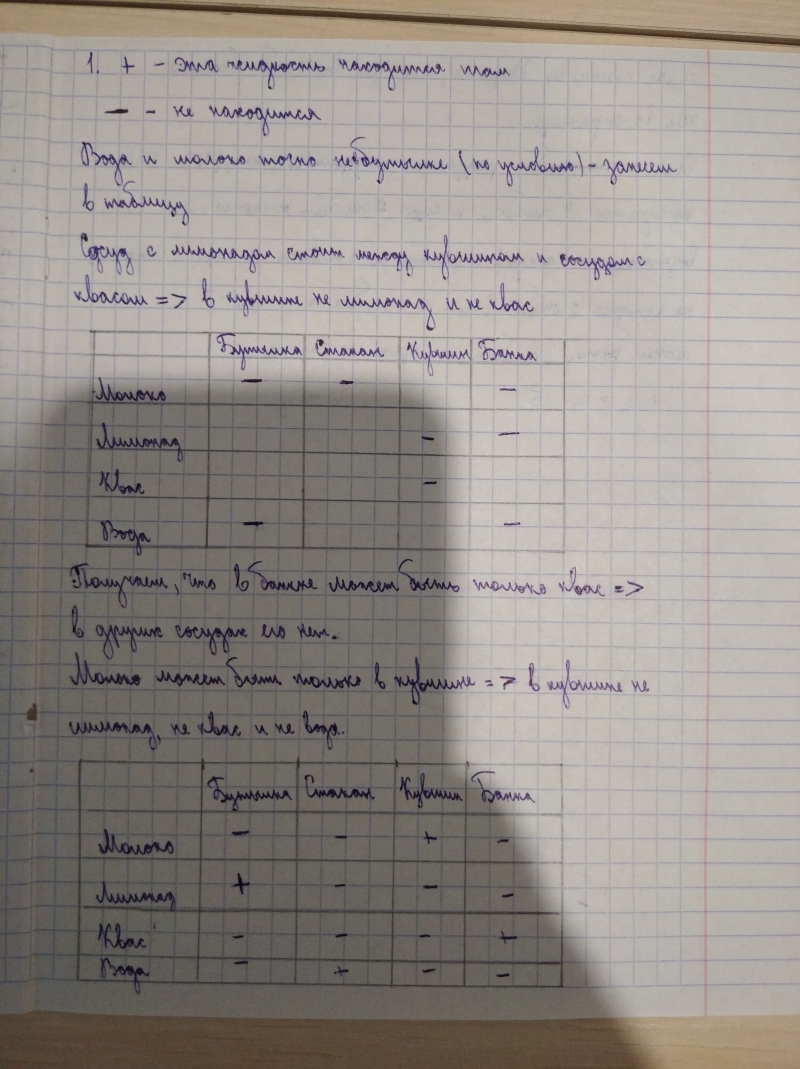 1. + - эта жидкость находится там
— - не находится
Вода и молоко точно не в бутылке (по условию) - занесем
в таблицу
Сосуд с лимонадом стоит между кувшином и сосудом с
квасом => в кувшине не лимонад и не квас
Бутылка Стакан Кувшин Банка
Молоко — — —
Лимонад — —
Квас —
Вода — —
Получаем, что в банке может быть только квас =>
в других сосудах его нет.
Молоко может быть только в кувшине => в кувшине не
лимонад, не квас и не вода.
Бутылка Стакан Кувшин Банка
Молоко — — + —
Лимонад + — — —
Квас — — — +
Вода — + — —